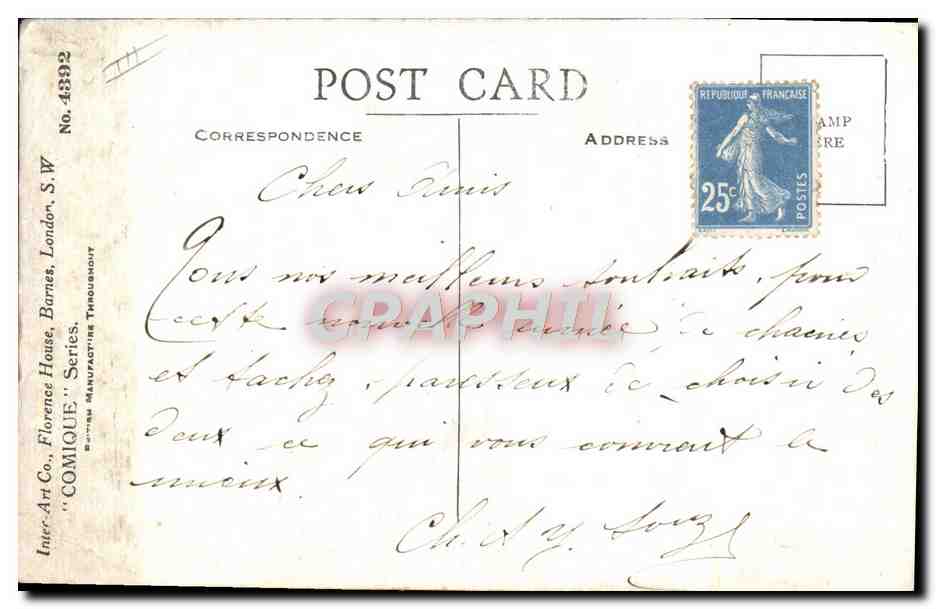 No. 4392
Inter-Art Co., Florence House, Barnes, London, S.W
"COMIQUE" Series.
BRITISH MANUFACTURE THROUGHOUT
POST CARD
CORRESPONDENCE
ADDRESS
AMP
ERE
REPUBLIQUE FRANÇAISE
25c
POSTES
Chers Amis
Tous nos meilleurs souhaits, pour
cette nouvelle année, de chacun
et tachez, paresseux de choisir des
deux ce qui vous convient le
mieux.
Ch. et Y.
CPAPHIL